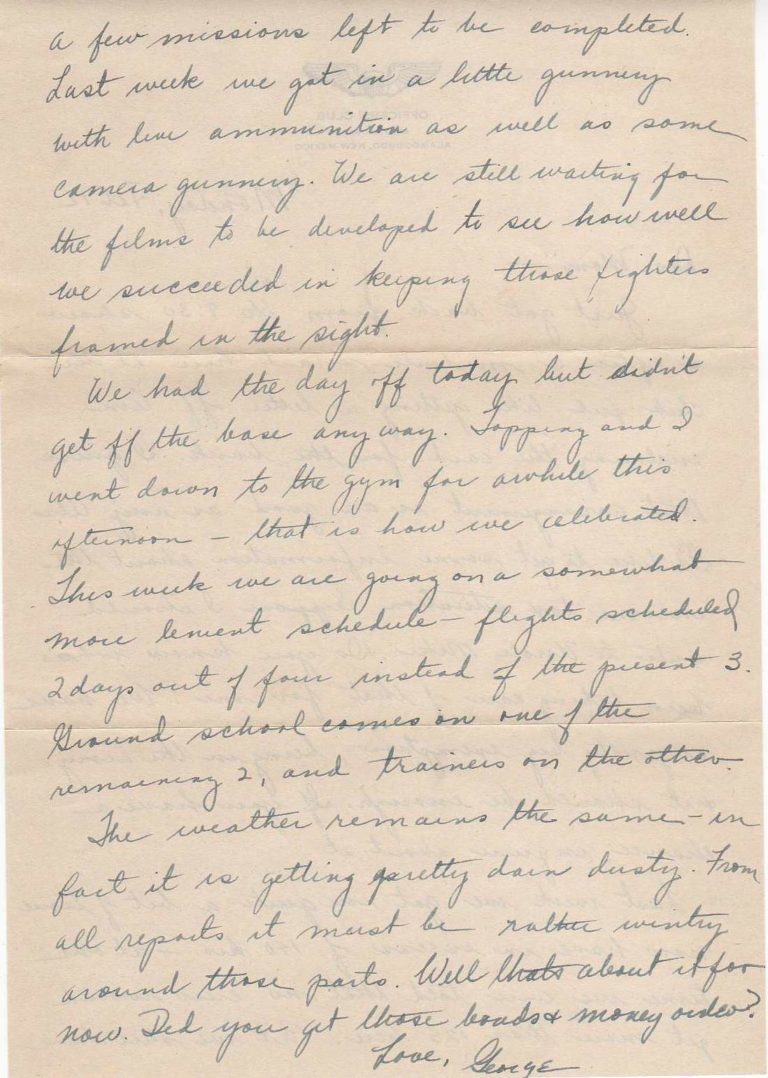 a few missions left to be completed.
Last week we got in a little gunnery
with live ammunition as well as some
camera gunnery. We are still waiting for
the films to be developed to see how well
we succeeded in keeping those fighters
framed in the sight.
We had the day off today but didn't
get off the base anyway. Topping and I
went down to the gym for awhile this
afternoon – that is how we celebrated.
This week we are going on a somewhat
more lenient schedule – flights scheduled
2 days out of four instead of the present 3.
Ground school comes on one of the
remaining 2, and trainers on the other.
The weather remains the same – in
fact it is getting pretty darn dusty. From
all reports it must be rather wintry
around those parts. Well thats about it for
now. Did you get those bonds & money order?
Love, George